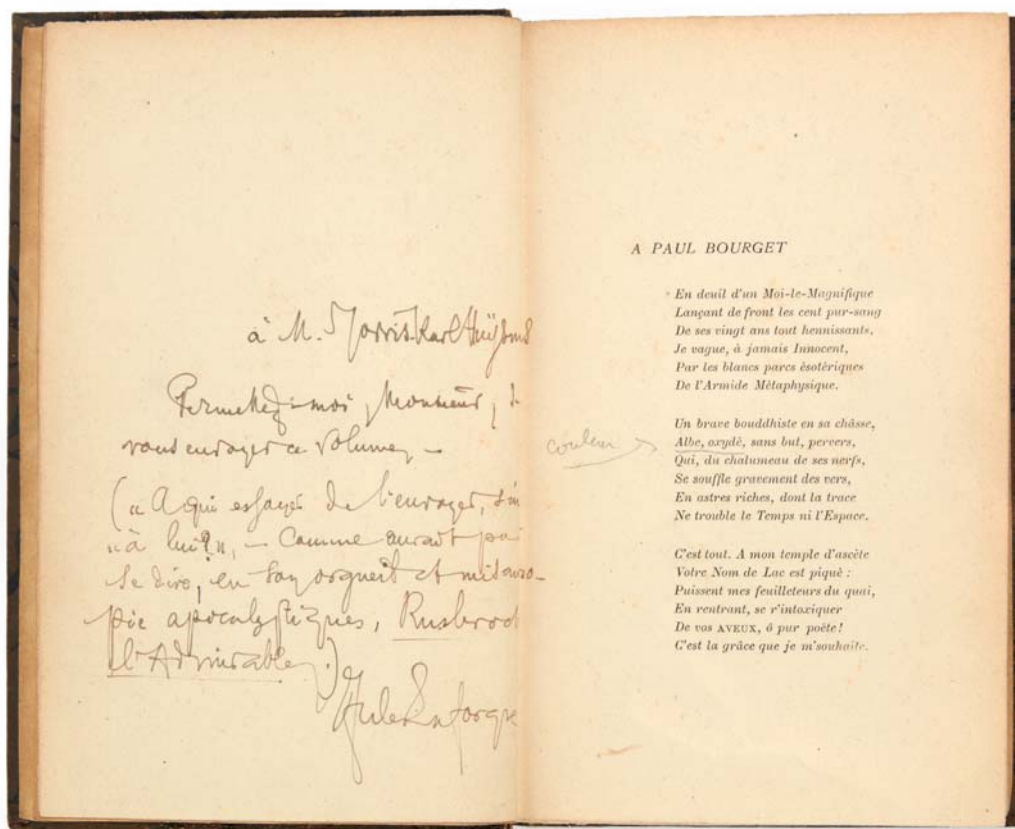 à M. Jorris Karl Huÿsmans
Permettez-moi, Monsieur, de
vous envoyer ce volume, —
(« A qui essayer de l'envoyer,
« à lui? », — comme aurait pu
se dire, en son orgueil et misanthro-
pie apocalyptiques, Rusbrock
l'Admirable.)
Jules Laforgue
A PAUL BOURGET
En deuil d'un Moi-le-Magnifique
Lançant de front les cent pur-sang
De ses vingt ans tout hennissants,
Je vague, à jamais Innocent,
Par les blancs parcs ésotériques
De l'Armide Métaphysique.
Un brave bouddhiste en sa châsse,
couleur
Albe, oxydé, sans but, pervers,
Qui, du chalumeau de ses nerfs,
Se souffle gravement des vers,
En astres riches, dont la trace
Ne trouble le Temps ni l'Espace.
C'est tout. A mon temple d'ascète
Votre Nom de Lac est piqué :
Puissent mes feuilleteurs du quai,
En rentrant, se r'intoxiquer
De vos AVEUX, ô pur poète!
C'est la grâce que je m'souhaite.